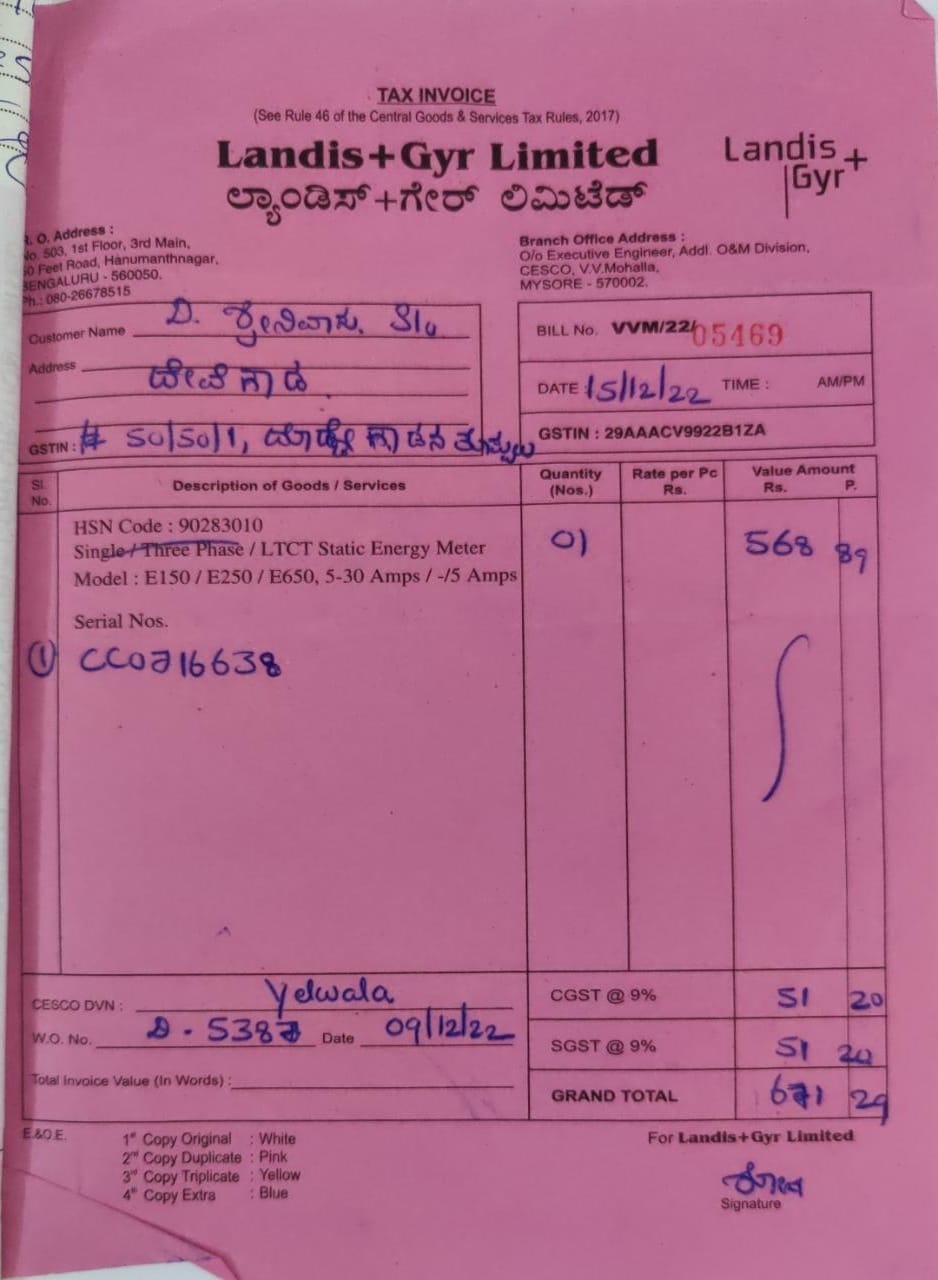 TAX INVOICE
(See Rule 46 of the Central Goods & Services Tax Rules, 2017)
Landis+Gyr Limited
ಲ್ಯಾಂಡಿಸ್+ಗೇರ್ ಲಿಮಿಟೆಡ್
Landis+
Gyr
. O. Address :
No. 503, 1st Floor, 3rd Main,
0 Feet Road, Hanumanthnagar,
BENGALURU - 560050.
Ph.: 080-26678515
Branch Office Address :
O/o Executive Engineer, Addl. O&M Division,
CESCO, V.V.Mohalla,
MYSORE - 570002.
Customer Name D. ಶ್ರೀನಿವಾಸ. S/o
Address
ದೇವೇಗೌಡ
GSTIN : # 50/50/1,
BILL No. VVM/22/05469
DATE 15/12/22 TIME : AM/PM
GSTIN : 29AAACV9922B1ZA
Sl. No. Description of Goods / Services Quantity (Nos.) Rate per Pc Rs. Value Amount Rs. P.
HSN Code : 90283010
Single / Three Phase / LTCT Static Energy Meter 01 568 89
Model : E150 / E250 / E650, 5-30 Amps / -/5 Amps
Serial Nos.
① CC0716638
CESCO DVN : Yelwala
W.O. No. D - 5387 Date 09/12/22
Total Invoice Value (In Words) :
CGST @ 9% 51 20
SGST @ 9% 51 20
GRAND TOTAL 671 29
E.&O.E.
1st Copy Original : White
2nd Copy Duplicate : Pink
3rd Copy Triplicate : Yellow
4th Copy Extra : Blue
For Landis+Gyr Limited
Signature